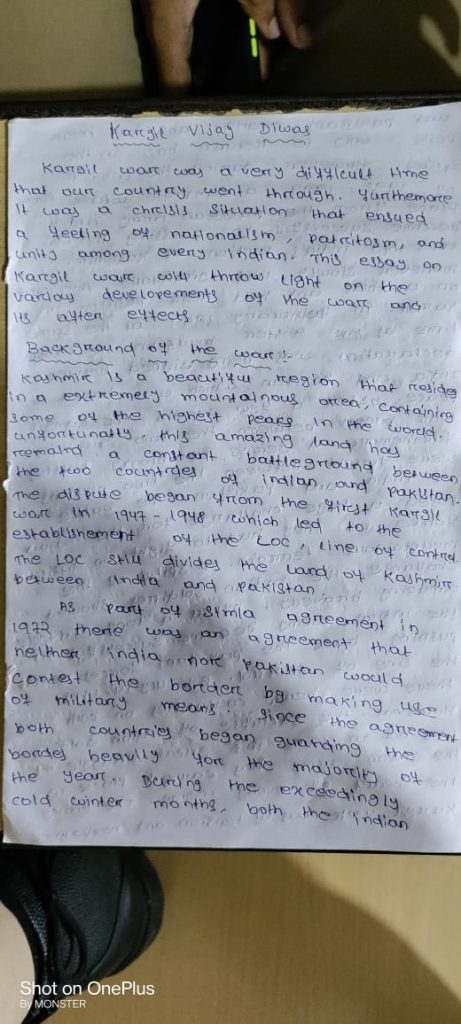 Kargil Vijay Diwas
Kargil war was a very difficult time
that our country went through. Furthemore
it was a chrisis situation that ensued
a feeling of nationalism, patritosm, and
unity among every indian. This essay on
Kargil war will throw light on the
various developements of the war and
its after effects.
Background of the war :-
Kashmir is a beautiful region that resides
in a extremely mountainous area, containing
some of the highest peaks in the world.
unfortunatly, this amazing land has
remaind a constant battleground between
the two countries of indian and pakistan.
The dispute began from the first Kargil
war in 1947-1948 which led to the
establishement of the LOC, line of control.
The LOC still divides the land of Kashmir
between India and pakistan
As part of simla agreement in
1972 there was an agreement that
neither india nor pakistan would
contest the border by making use
of military means. Since the agreement
both countries began guarding the
bordes heavily for the majority of
the year. During the exceedingly
cold winter months, both the indian
Shot on OnePlus
By MONSTER